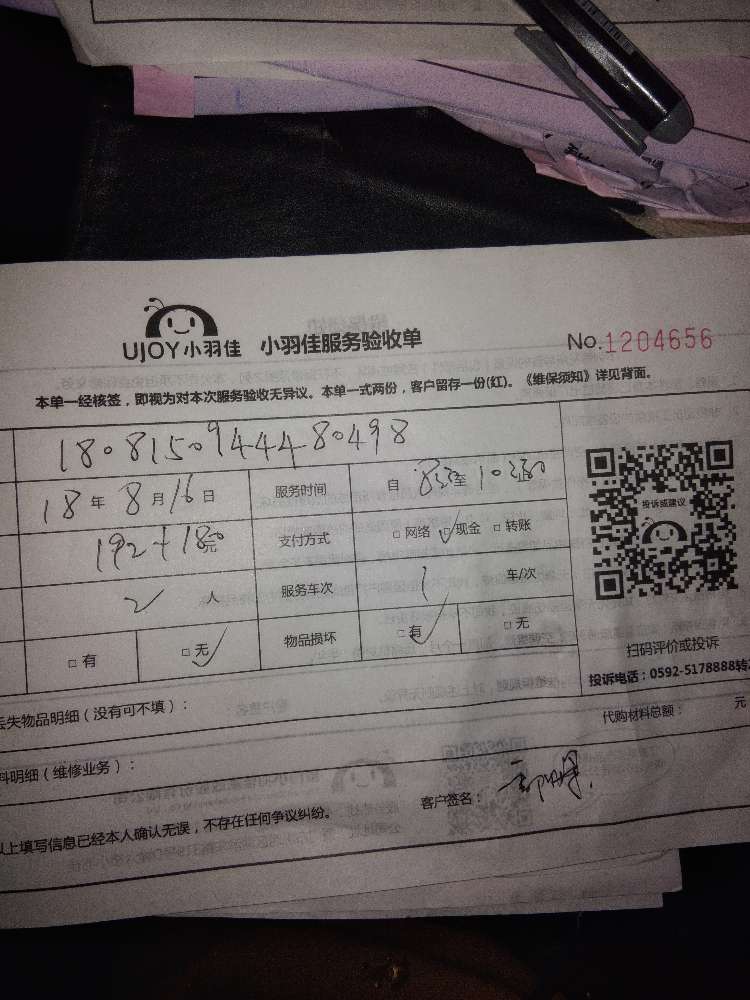 UJOY小羽佳 小羽佳服务验收单 No.1204656
本单一经核签，即视为对本次服务验收无异议。本单一式两份，客户留存一份(红)。《维保须知》详见背面。
1808150944480498
18年8月16日 服务时间 自
192+180元 支付方式 □网络 □现金 □转账
2人 服务车次 1 车/次
□有 □无 物品损坏 □有 □无
投诉或建议
扫码评价或投诉
投诉电话：0592-5178888转
丢失物品明细（没有可不填）：
代购材料总额： 元
料明细（维修业务）：
客户签名：
以上填写信息已经本人确认无误，不存在任何争议纠纷。